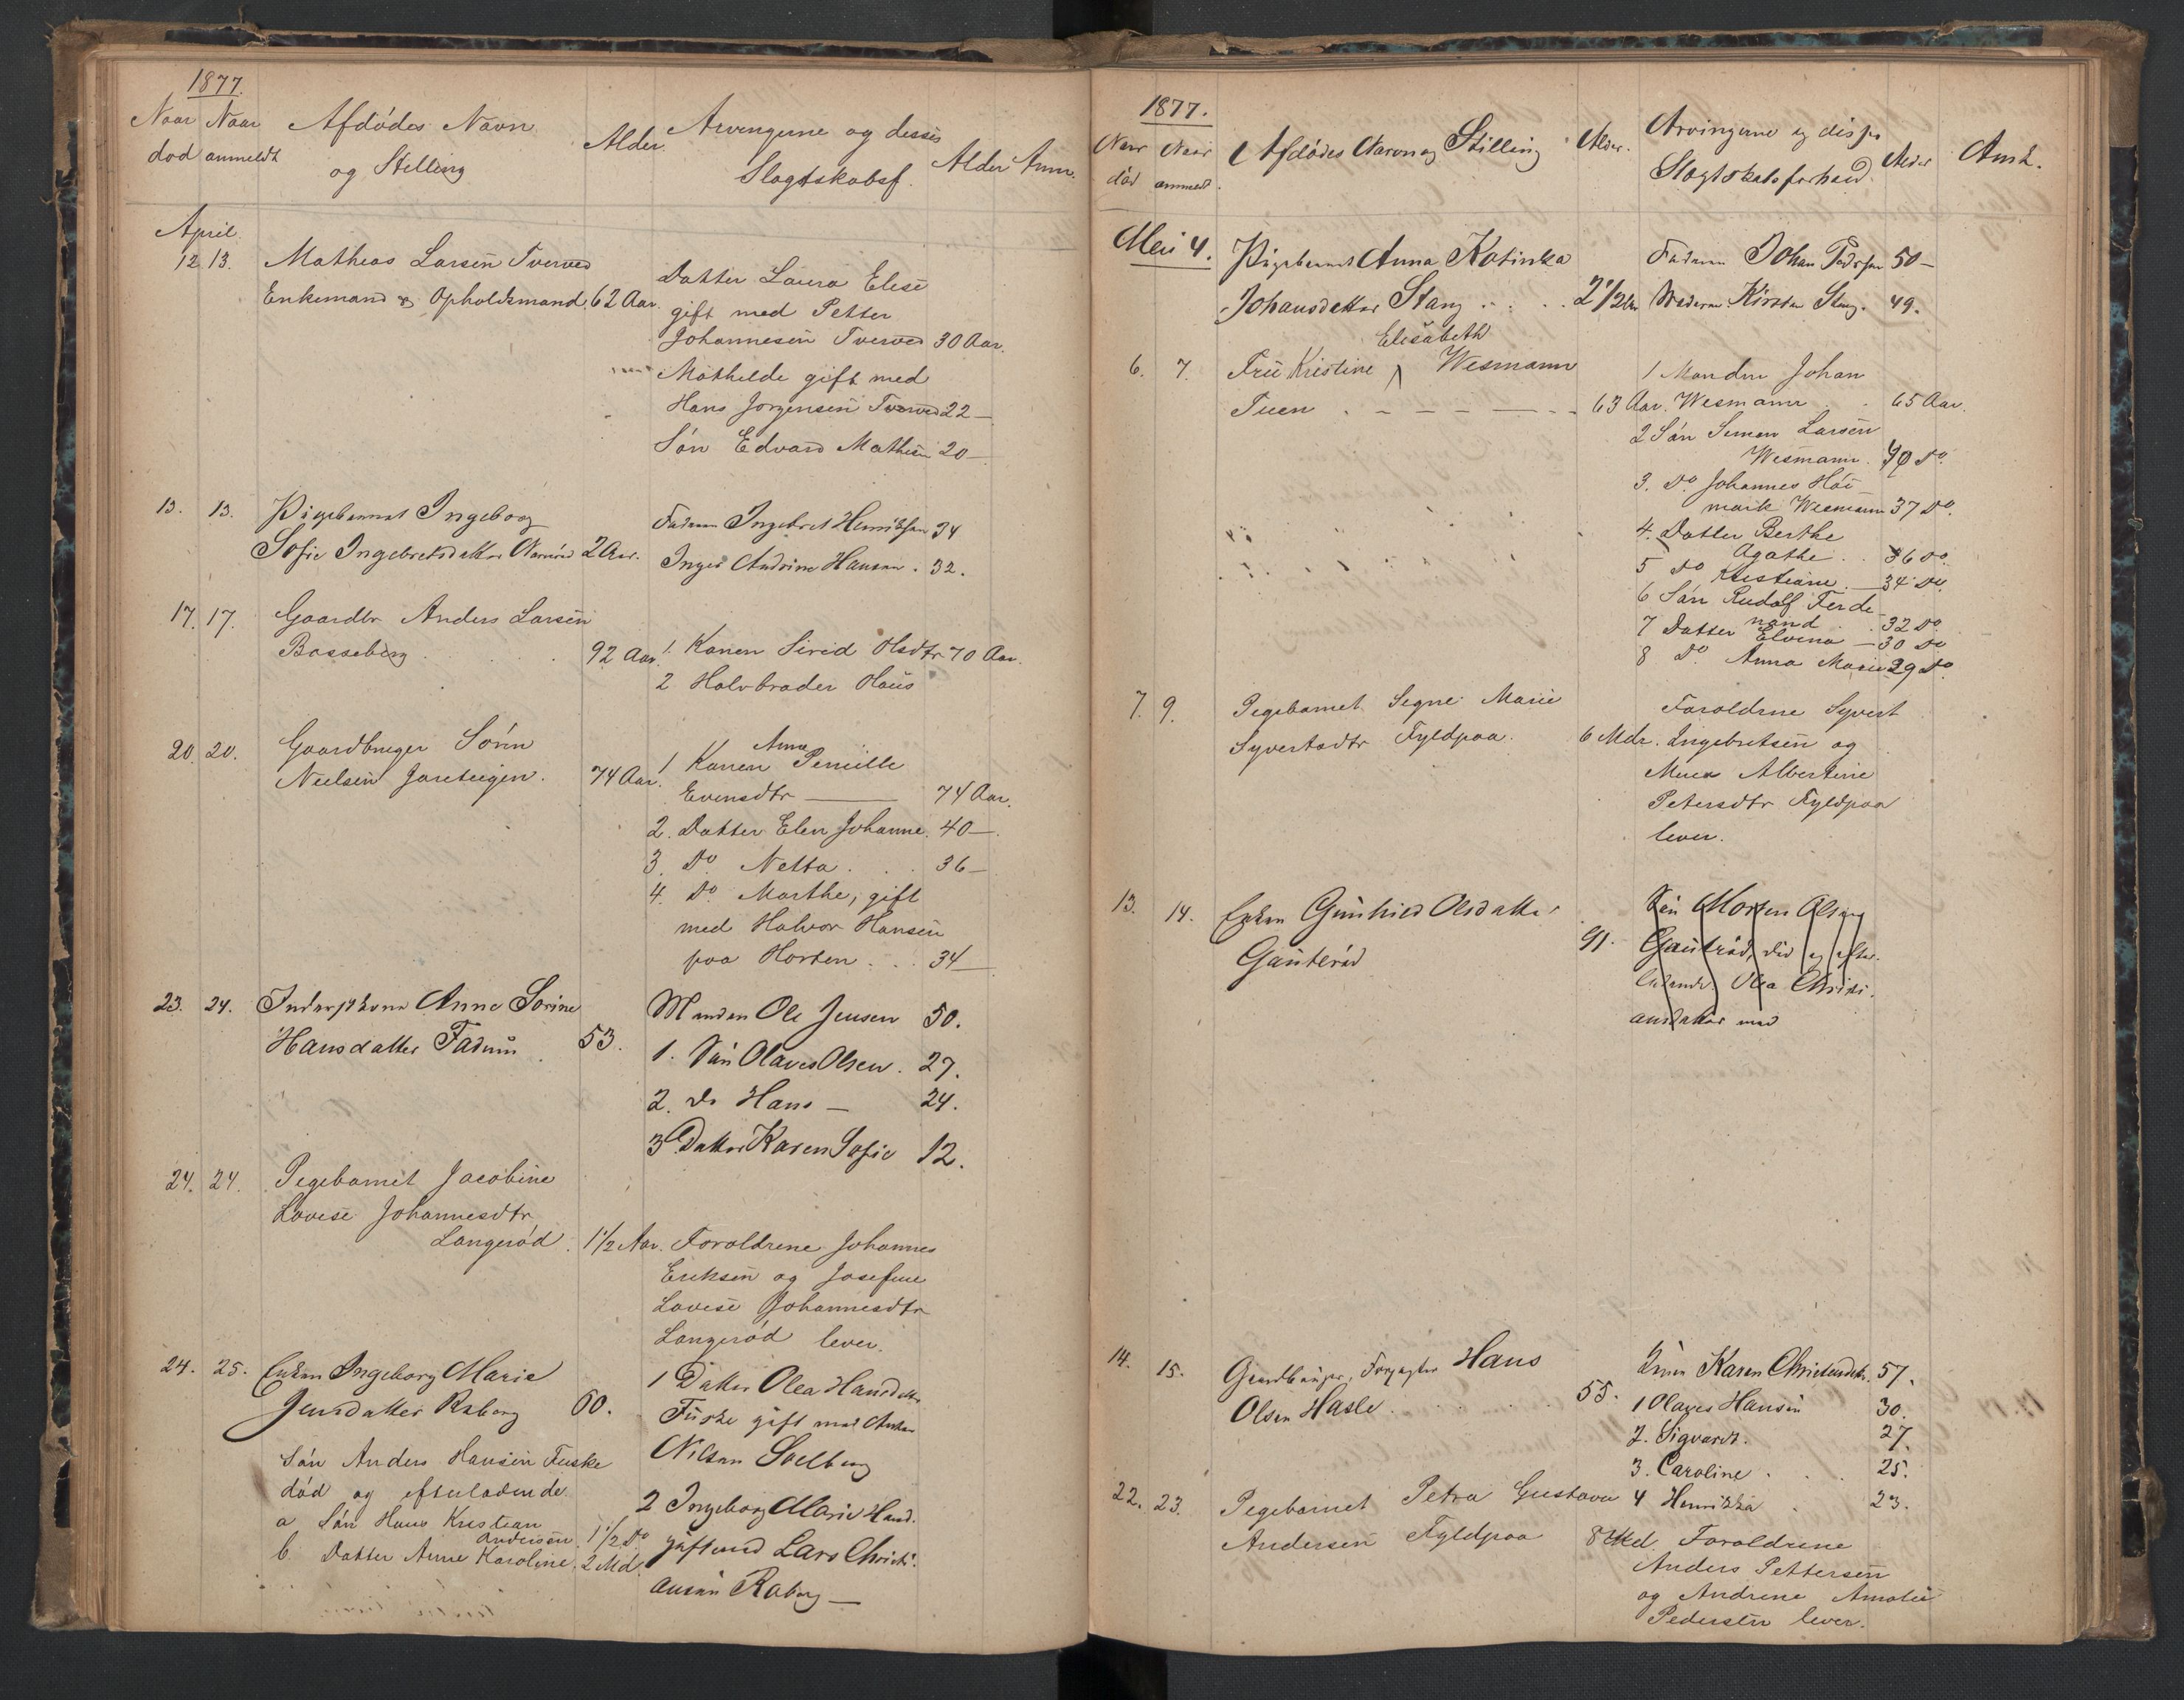 1877.
Naar Naar Afdödes Navn Alder. Arvingerne og disses Alder Anm.
död anmeldt og Stilling Slagtskabsf.
April
12 13. Mathias Larsen Tverved Datter Laura Elise
Enkemand og Opholdsmand 62 Aar. gift med Petter
Johannesen Tverved 30 Aar.
Mathilde gift med
Hans Jorgensen Tverved 22 —
Sön Edvard Mathisen 20 —
13. 13. Pigebarnet Ingeborg Faderen Ingebret Henriksen 34
Sofie Ingebretsdatter 2 Aar. Inger Andrine Hansen . 32.
17. 17. Gaardbr Anders Larsen
Basseberg 92 Aar. 1. Konen Sirid Olsdtr 70 Aar.
2 Halvbroder Hans
20. 20. Gaardbruger Sören Anne
1 Konen Pernille
Nielsen Jareteigen. 74 Aar. Evensdtr — 74 Aar.
2. Datter Elen Johanne. 40 —
3. Do Netta . . . 36 —
4. Do Marthe, gift
med Halvor Hansen
paa Horten . . . 34 —
23. 24. Inderstkone Anne Sorine Manden Ole Jensen 50.
Hansdatter Fadum . 53. 1. Sön Olaves Olsen . 27.
2. do Hans — 24.
3 Datter Karen Sofie 12.
24. 24. Pegebarnet Jacobine
Lovise Johannesdtr
Langeröd . 1 1/2 Aar. Foroldrene Johannes
Eriksen og Josefine
Lovise Johannesdtr
Langeröd lever.
24. 25. Enken Ingeborg Marie 1 Datter Olea Hansdatter
Jensdatter Raberg 60. Fuske gift med
Nilsen Solberg
Sön Anders Hansen Fuske
död og efterladende 2 Ingeborg Marie Hansd.
a Sön Hans Kristian
Andersen. 1 1/2 Do gift med Lars Christi-
b Datter Anne Karoline. 2 Md. ansen Raberg —
1877.
Naar Naar Afdödes Navn og Stilling Alder. Arvingerne og disses Alder Anm.
död anmeldt. Slagtskabsforhold.
Mai 4. Pigebarnet Anna Katinka Faderen Johan Pedersen 50 —
Johansdatter Stang . . . . 2 1/2 Aar Moderen Kirsten Stang. 49.
Elisabeth
6. 7. Frü Kristine Wesmann 1 Manden Johan
Tuen . – – – – – 63 Aar. Wesmann . . 65 Aar.
2 Sön Simen Larsen
Wesmann . 40 Do.
3. Do Johannes Höi-
mark Wesmann 37 Do.
4. Datter Berthe
Agathe . . 36 Do.
5 Do Kristiane — 34 Do.
6 Sön Rudolf Ferde-
nand . . 32 Do.
7 Datter Elvina — 30 Do
8 Do. Anna Marie 29 Do.
7. 9. Pegebarnet Segne Marie Foroldrene Syvert
Syvertsdtr Fyldpaa. 6 Mdr. Ingebretsen og
Albertine
Petersdtr Fyldpaa
lever.
13. 14. Enken Gunhild Olsdatter Sön Morten Olsen
Gauteröd 91. Gauteröd, död og efter-
ladende Olea Christi-
ansdatter med
14. 15. Gaardbruger, Hans Karen Christensdtr. 57.
Olsen Hasle . . . 55. 1 Olaves Hansen 30.
2. Sigvardt. 27.
3. Caroline . . . 25.
22. 23. Pegebarnet Petra Gustava 4 Henrikka . 23.
Andersen Fyldpaa 8 Md. Foroldrene
Anders Pettersen
og Andrene Amalie
Pedersen lever.